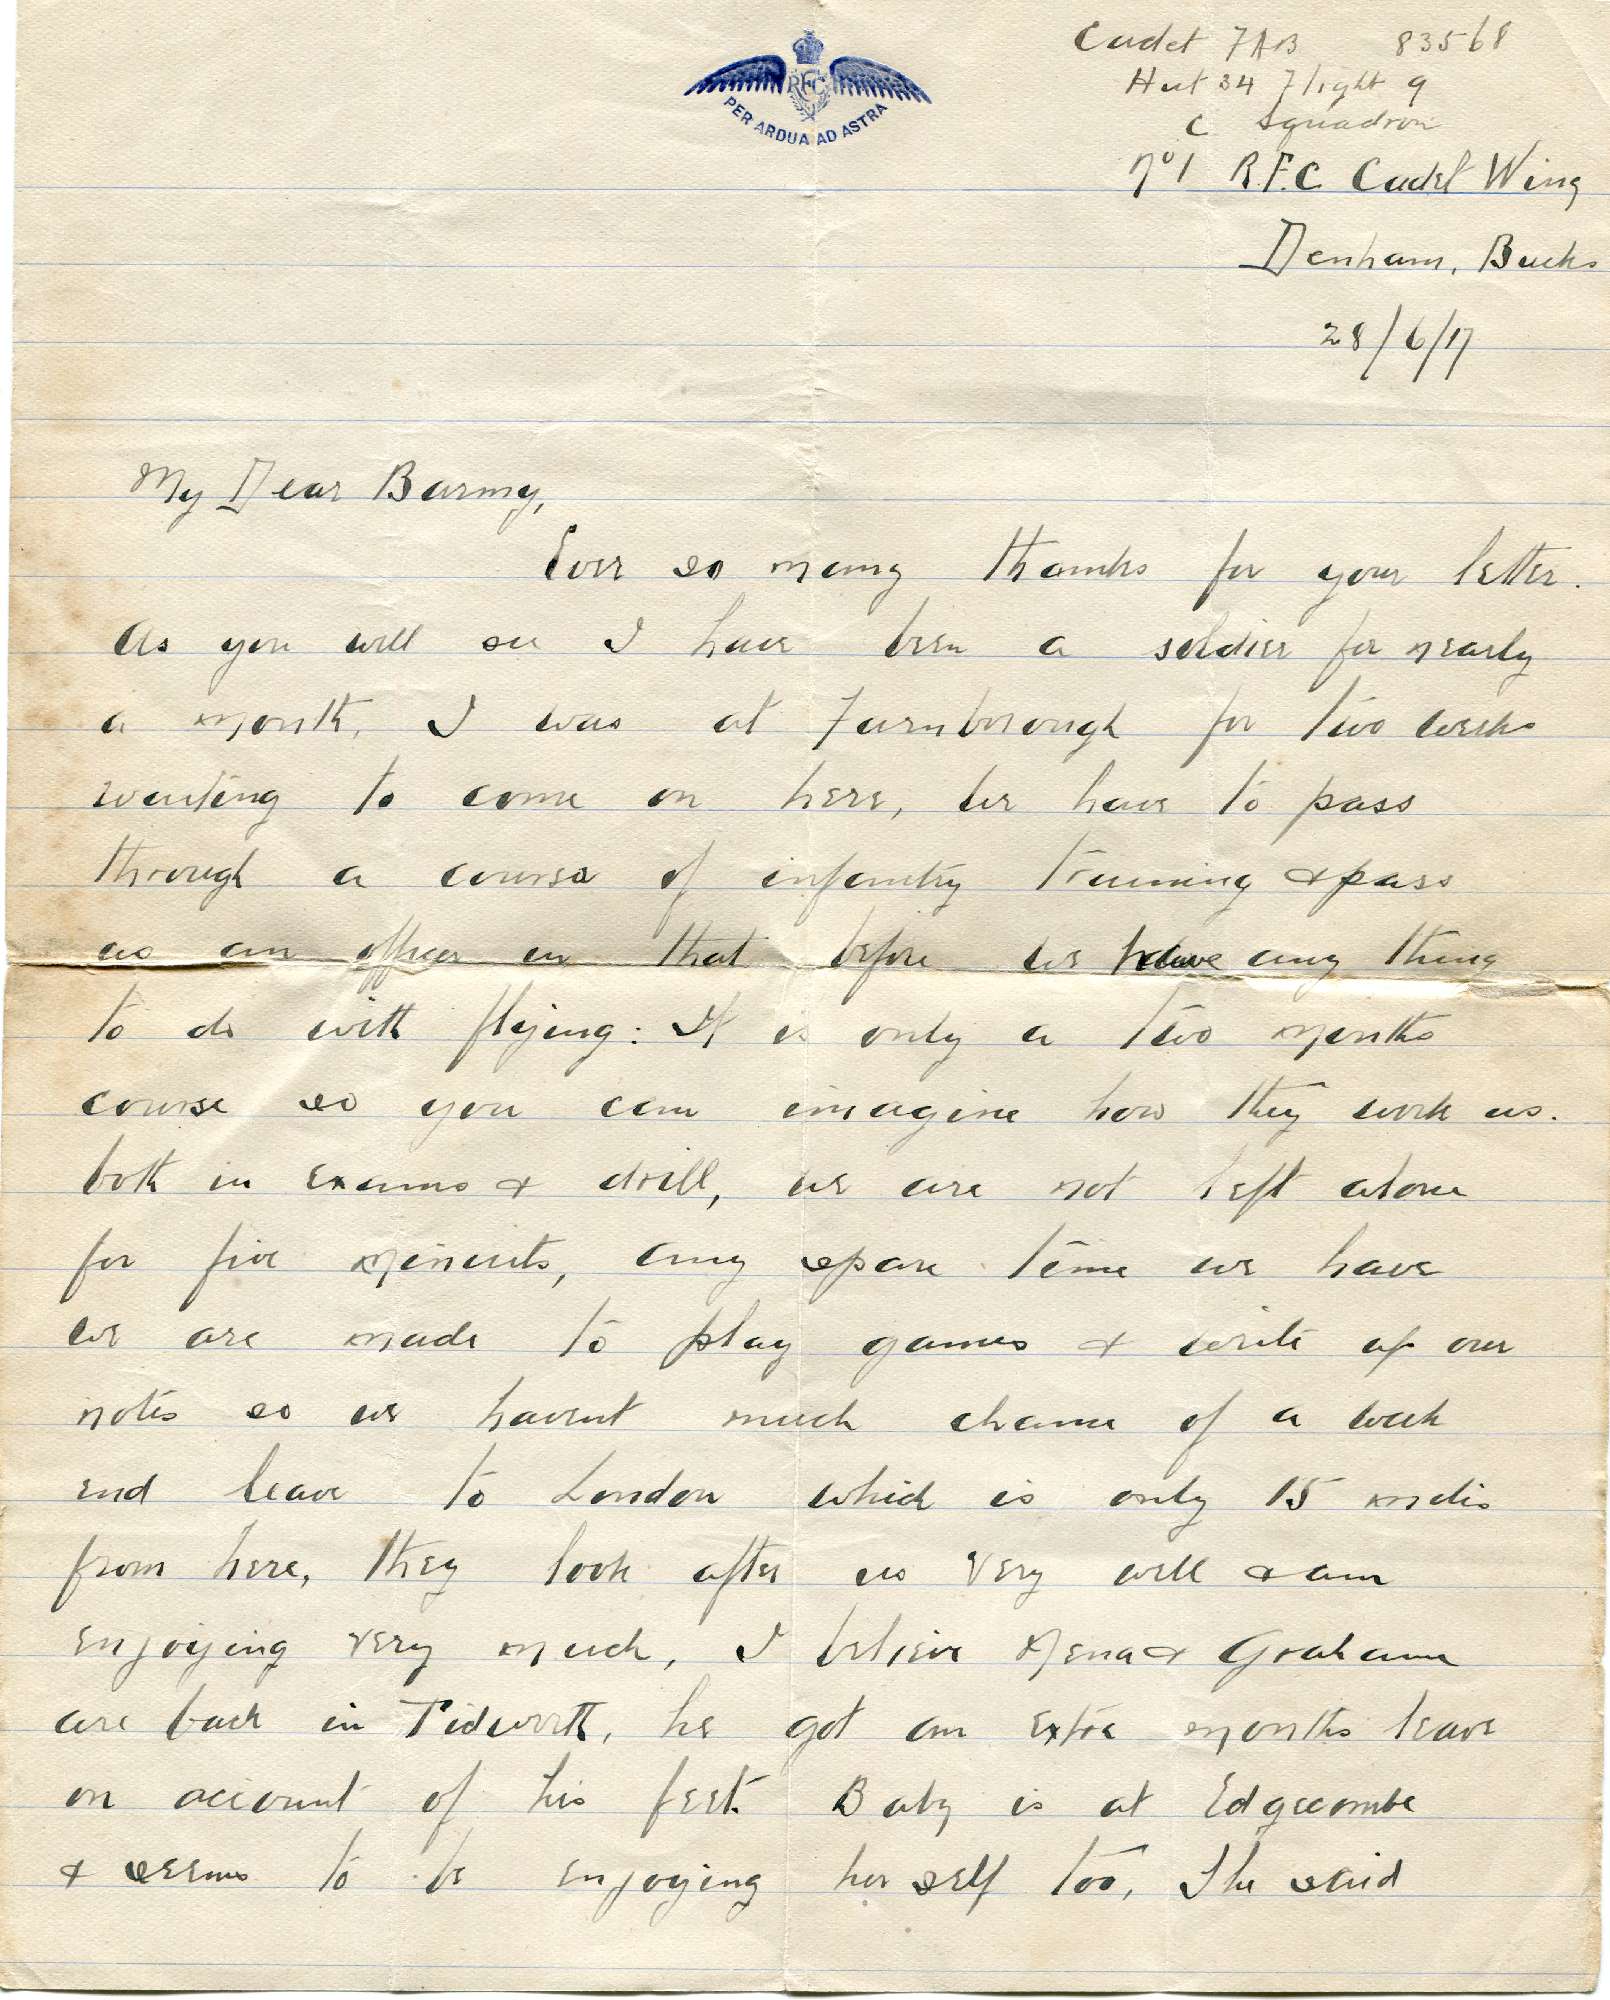 RFC
PER ARDUA AD ASTRA
Cadet FAB 83568
Hut 34 Flight 9
C Squadron
No 1 R.F.C. Cadet Wing
Denham, Bucks
28/6/17
My Dear Barmy,
Ever so many thanks for your letter.
As you will see I have been a soldier for nearly
a month, I was at Farnborough for two weeks
waiting to come on here, we have to pass
through a course of infantry training & pass
as an officer in that before we have any thing
to do with flying: It is only a two months
course so you can imagine how they work us.
both in exams & drill, we are not left alone
for five minuts, any spare time we have
we are made to play games & write up our
notes so we havent much chance of a week
end leave to London which is only 15 miles
from here, they look after us very well & am
enjoying very much, I believe Mena & Graham
are back in Tidworth, he got an extra months leave
on account of his feet. Baby is at Edgecombe
& seems to be enjoying her self too, She said